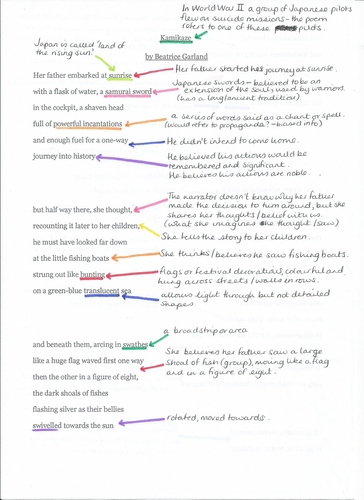 In World War II a group of Japanese pilots
flew on suicide missions - the poem
refers to one of these pilots.
Kamikaze
Japan is called 'land of
the rising sun'.
by Beatrice Garland
Her father embarked at sunrise
Her father started her journey at sunrise.
with a flask of water, a samurai sword
Japanese swords - believed to be an
extension of the soul, used by warriors.
(has a long/ancient tradition).
in the cockpit, a shaven head
full of powerful incantations
a series of words said as a chant or spell.
(would refer to propaganda? - biased info)
and enough fuel for a one-way
He didn't intend to come home.
journey into history
He believed his actions would be
remembered and significant.
He believes his actions are noble.
but half way there, she thought,
The narrator doesn't know why her father
made the decision to turn around, but she
shares her thoughts/belief with us
(what she imagines she thought/saw)
recounting it later to her children,
She tells the story to her children.
he must have looked far down
at the little fishing boats
She thinks/believes he saw fishing boats.
strung out like bunting
flags or festival decoration, colourful and
hung across streets/walls in rows.
on a green-blue translucent sea
allows light through but not detailed
shapes
a broad strip or area
and beneath them, arcing in swathes
like a huge flag waved first one way
She believes her father saw a large
shoal of fish (group), moving like a flag
and in a figure of eight.
then the other in a figure of eight,
the dark shoals of fishes
flashing silver as their bellies
swivelled towards the sun
rotated, moved towards.